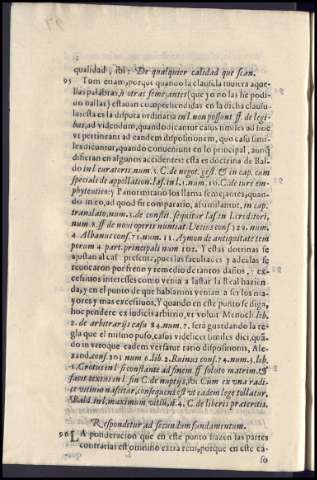 qualidad, ibi: De qualquier calidad que sean.
95 Tum etiam, porque quando la clausula tuviera aque-
llas palabras, ò otras semejantes (que yo no las he podi-
do hallar) estavan comprehendidas en la dicha clausu-
la: esta es la disputa ordinaria in l. non possunt ff. de legi-
bus, ad videndum, quando dicantur casus similes ad fine
vt pertineant ad eandem dispositionem, quo casu simi-
les dicuntur, quando conveniunt en lo principal, aunq
difieran en algunos accidentes: esta es doctrina de Bal-
do in l. curateris, num. C. de negot. gest. & in cap. cum
speciale de appellation. Iaf. in l. num. 10. C. de iure em-
phyteutico; y Panormitano los llama semejantes, quan-
do in eo, ad quod fit comparatio, assimilantur, in cap.
translato, num. de constit. sequitur Iaf. in l. creditori,
num. ff. de noui operis nuntiat. Decius cons. 329. num.
4. Albanus cons. 71. num. 11. Aymon de antiquitate tem
porum 4. part. principali num 102. Y estas doctrinas se
ajustan al caso presente, pues las facultades y adealas se
revocaron por freno y remedio de tantos daños, ex-
cesivos intereses como venia a lastar la Real hazien-
da, y en el punto de que hablamos venian a ser los ma-
yores y mas excesiuos, Y quando en este punto se diga,
hoc pendere ex iudicis arbitrio, vt voluit Menoch. lib.
2. de arbitrarijs casu 84. num. 7. serà guardando la re-
gla que el mismo puso, casus videlicet similes dici, quã-
do in vtroque eadem versatur ratio dispositionis, Ale-
xand. cons. 101 num 6. lib. 2. Ruinus cons. 74. num. 3. lib.
1. Crotus in l. si constante ad finem ff. soluto matrim. &
facit textus in l. fin C. de nuptijs, ibi Cum ex vna radi-
ce vitium nascitur, consequens est vt eadem lege tollatur,
Bald. in l. maximum vitiũ, n. 4. C. de liberis præteritis.
Respondetur ad secundum fundamentum.
96 LA ponderacion que en este punto hazen las partes
contrarias es omnino extra rem, porque en este ca-
so